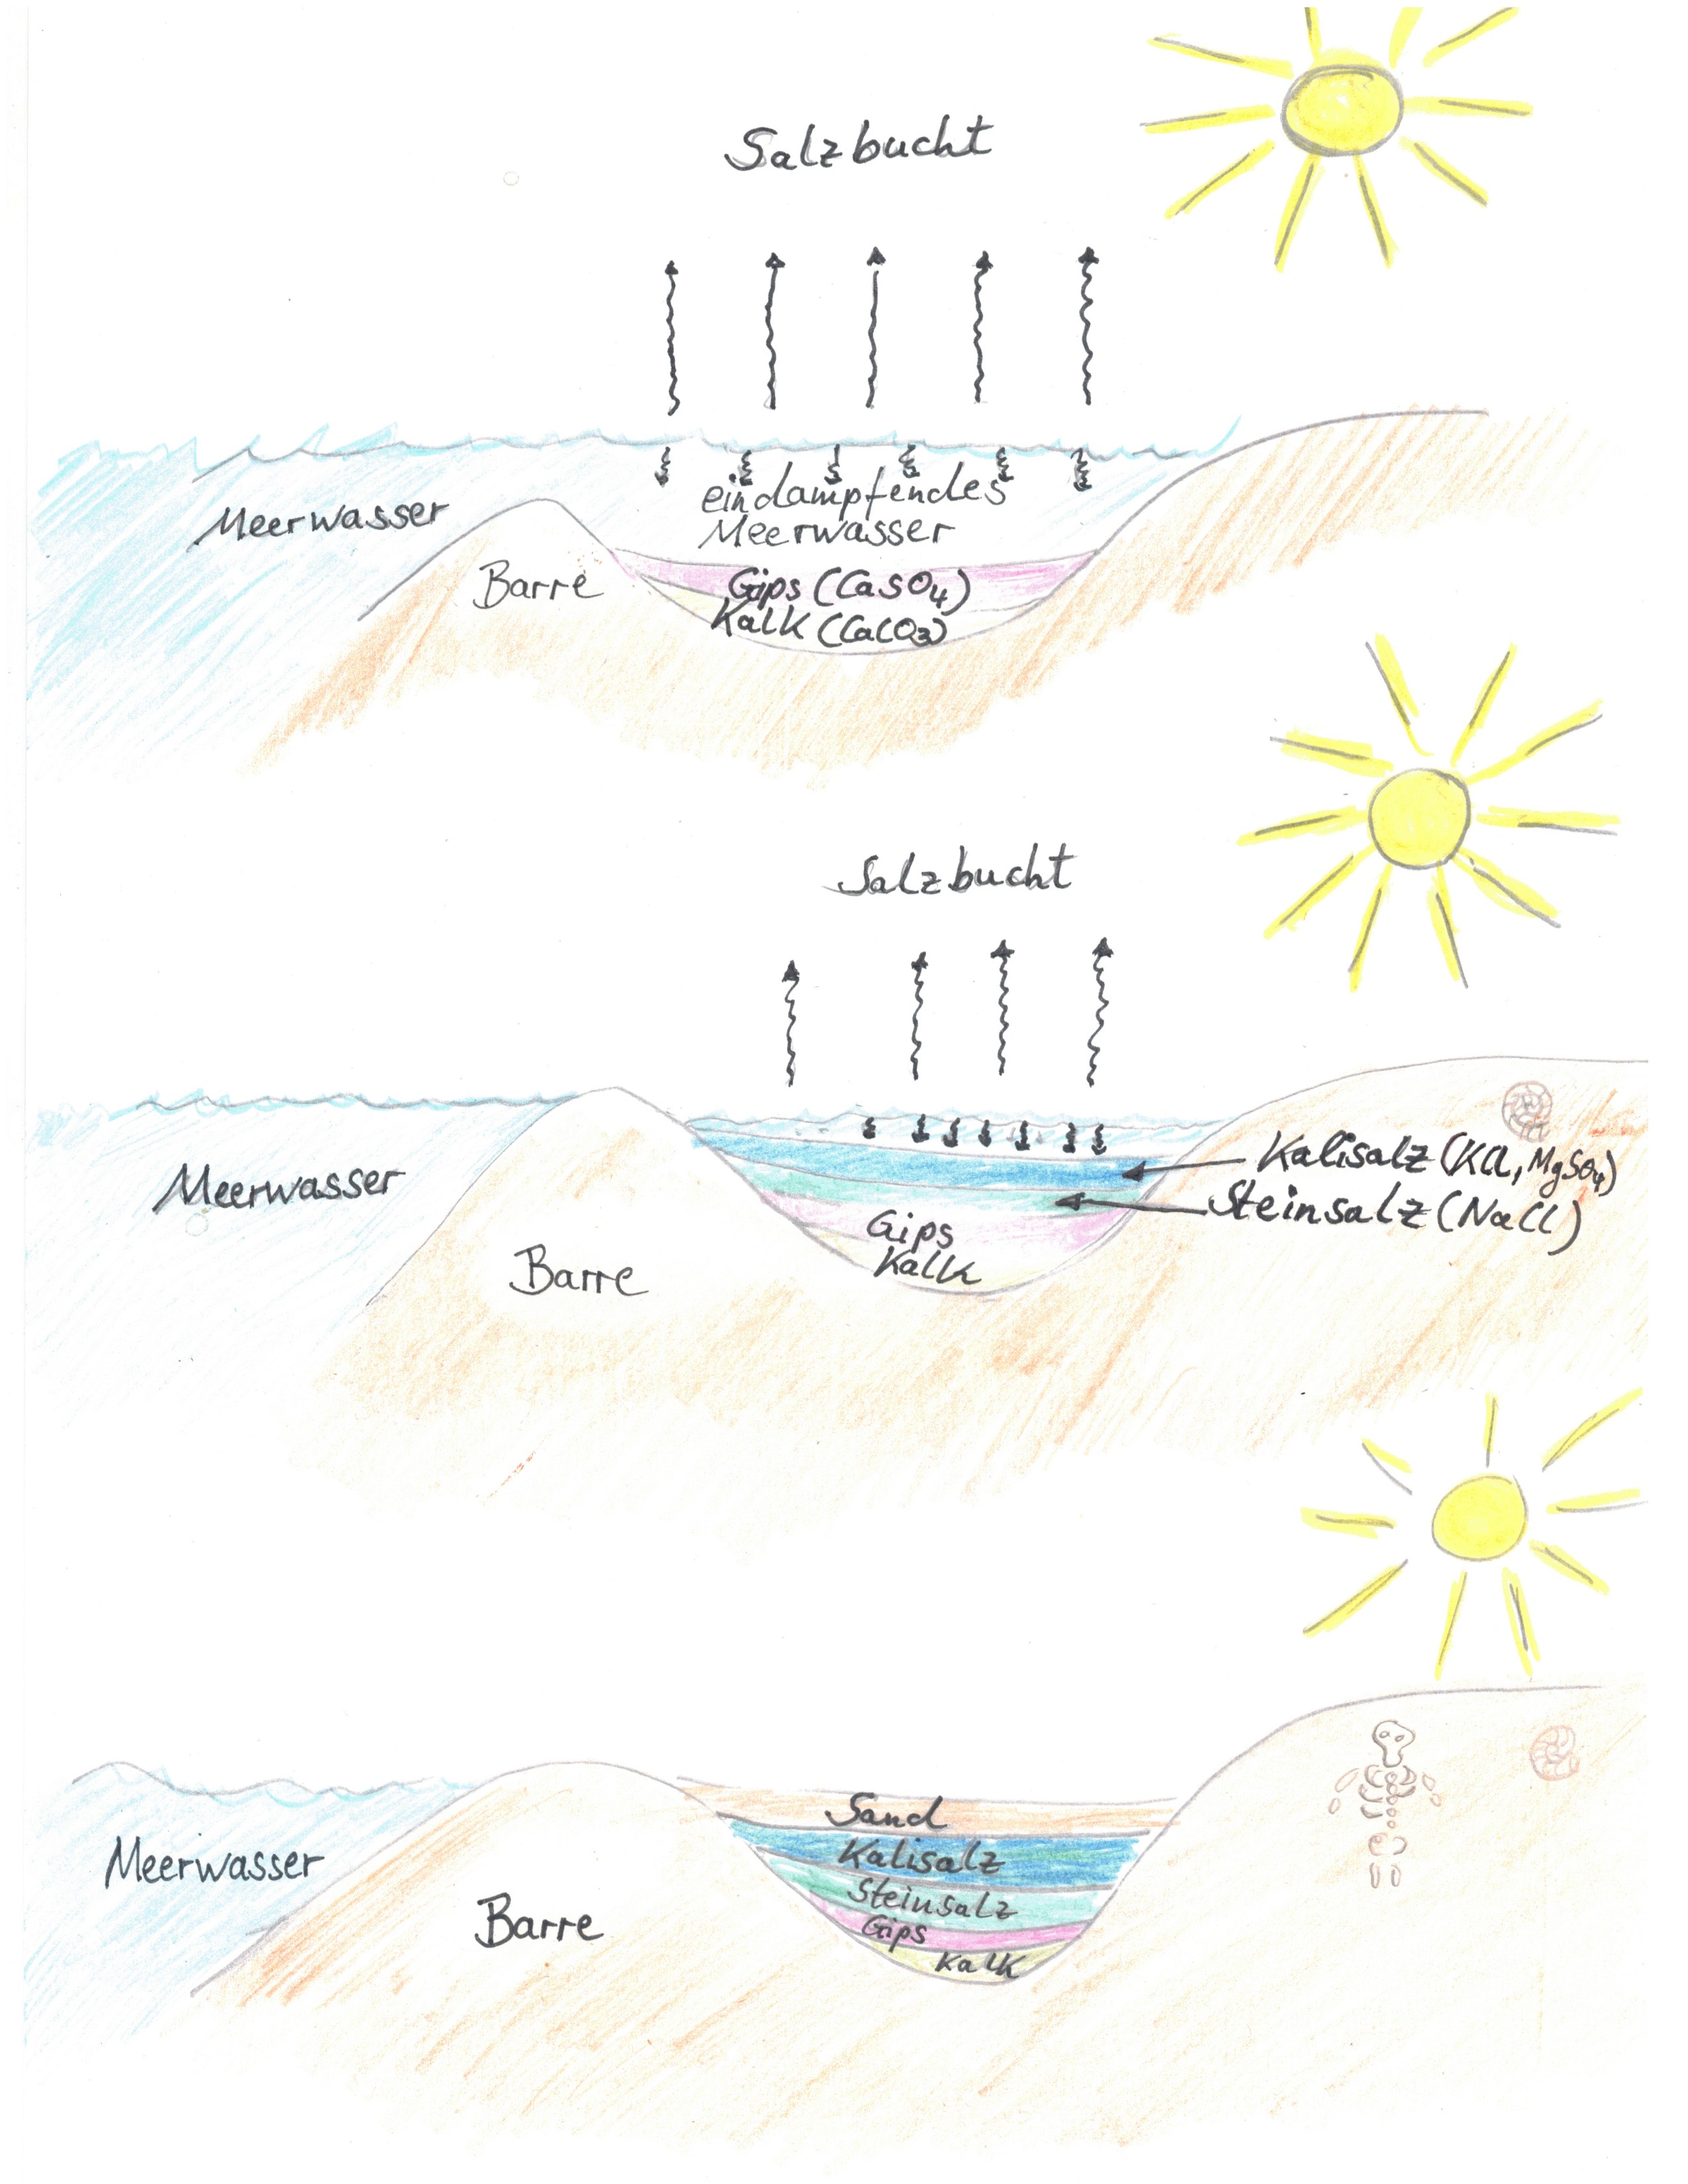 Salzbucht
Meerwasser
eindampfendes
Meerwasser
Barre
Gips (CaSO4)
Kalk (CaCO3)
Salzbucht
Meerwasser
Kalisalz (KCl, MgSO4)
Steinsalz (NaCl)
Gips
Kalk
Barre
Sand
Kalisalz
Steinsalz
Gips
Kalk
Meerwasser
Barre